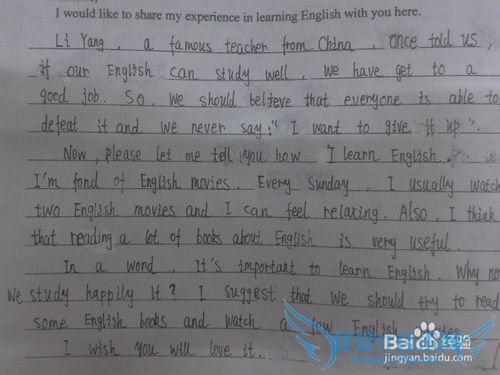 I would like to share my experience in learning English with you here.
Li Yang, a famous teacher from China, once told us,
if our English can study well, we have get to a
good job. So, we should believe that everyone is able to
defeat it and we never say: "I want to give it up".
Now, please let me tell you how I learn English.
I'm fond of English movies. Every Sunday, I usually watch
two English movies and I can feel relaxing. Also, I think
that reading a lot of books about English is very useful.
In a word, it's important to learn English. Why no
we study happily it? I suggest that we should try to read
some English books and watch a few English
I wish you will love it.
Baidu 经验
jingyan.baidu.com